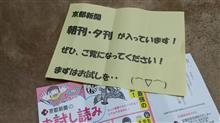 京都新聞
朝刊・夕刊が入っています!
ぜひ、ご覧になってください!
まずはお試しを…
京都新聞の
お試し読み